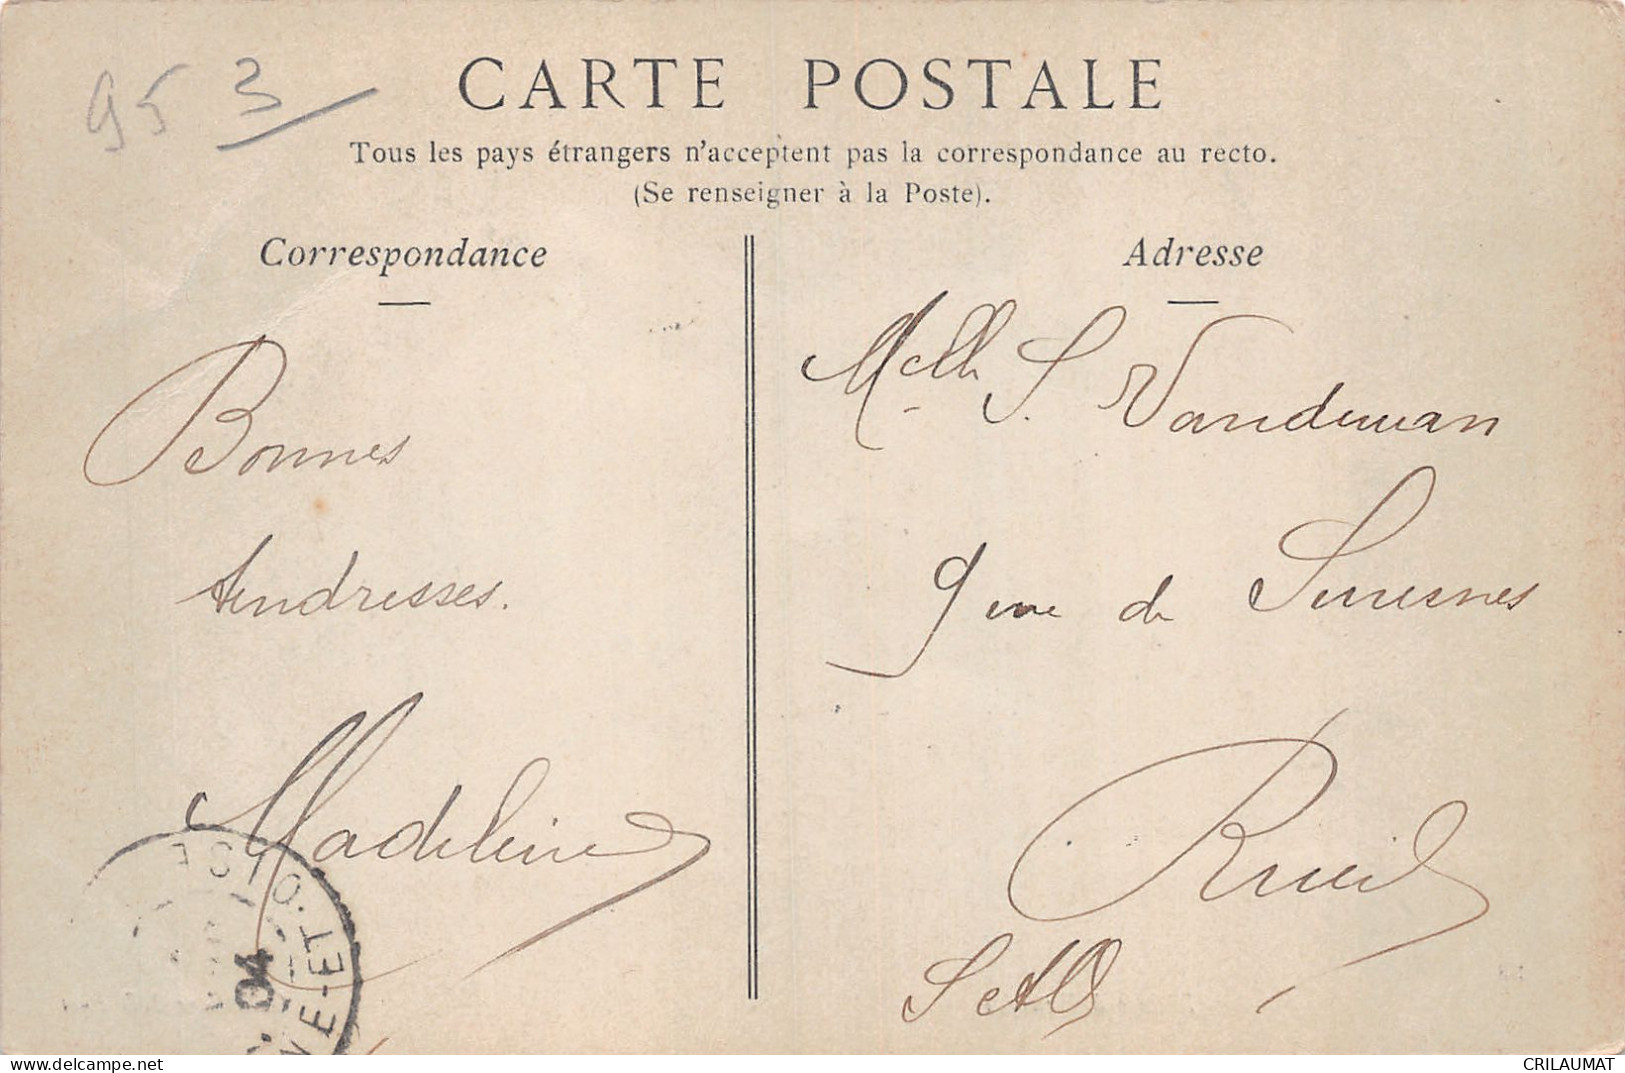 95 3
CARTE POSTALE
Tous les pays étrangers n'acceptent pas la correspondance au recto.
(Se renseigner à la Poste).
Correspondance
Bonnes
tendresses.
Madeleine
Adresse
Melle S. Vandeman
9 rue de Suresnes
Rueil
S et O
04
O.
NE-ET
CRILAUMAT